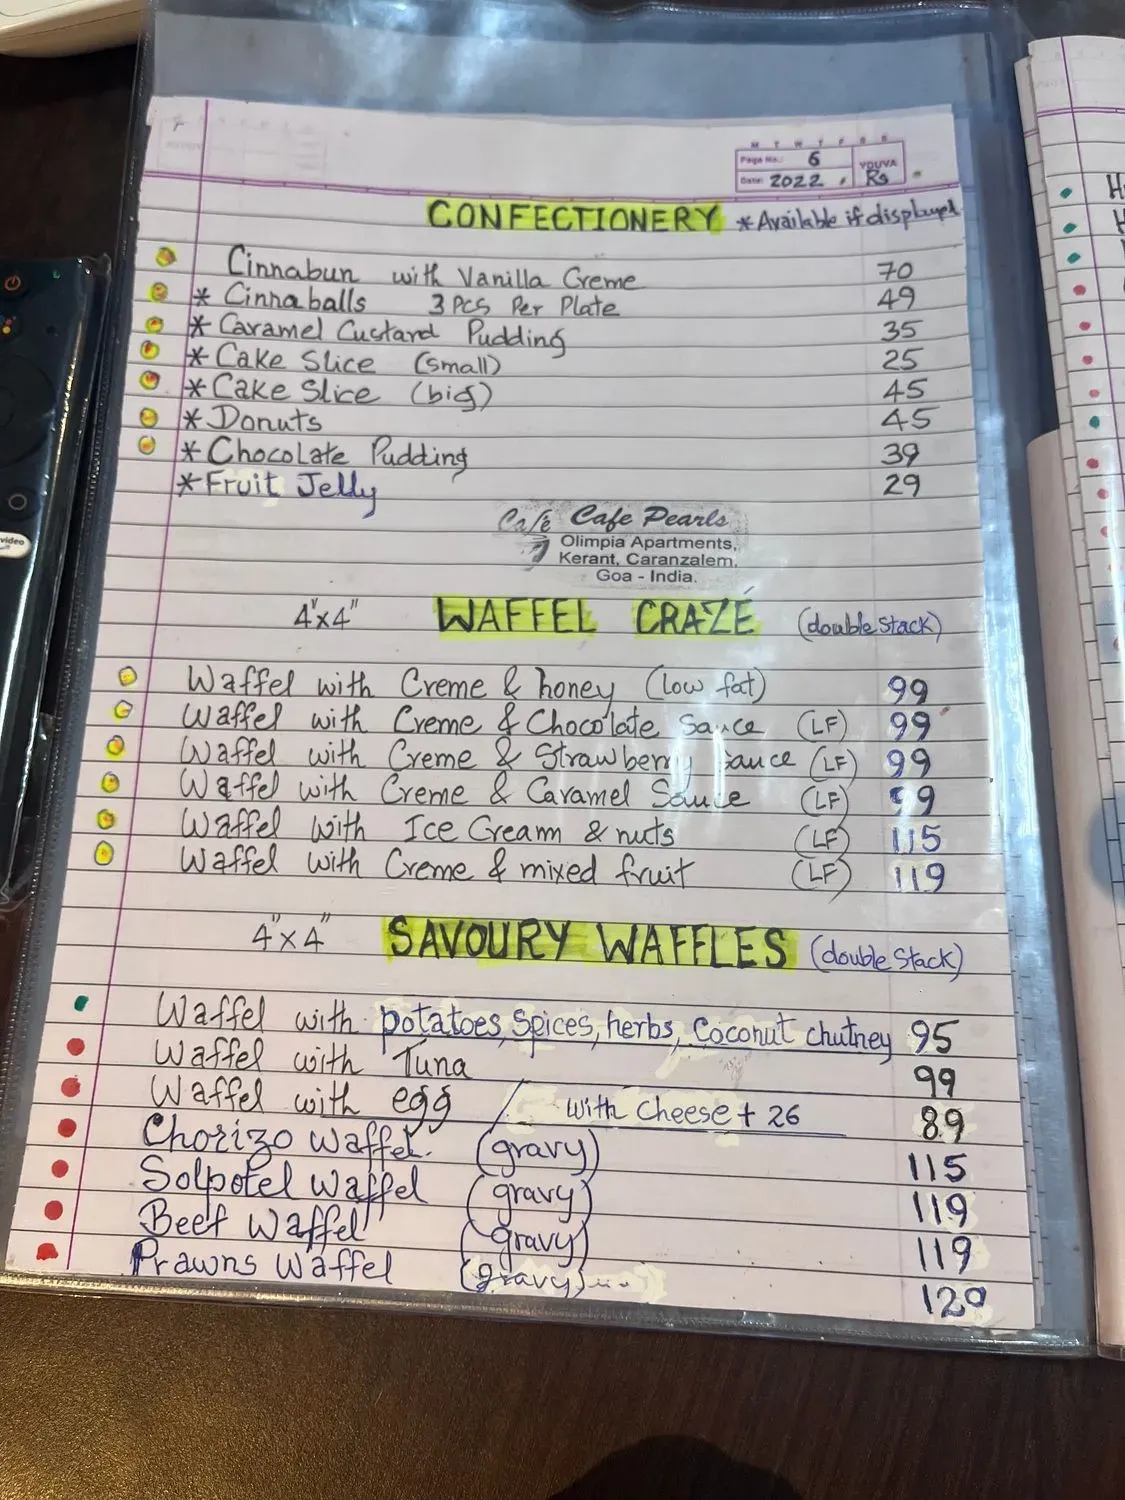 M T W T F S S
Page No.: 6 YOUVA
Date: 2022 Rs
CONFECTIONERY * Available if displayed
Cinnabun with Vanilla Creme 70
* Cinnaballs 3 Pcs Per Plate 49
* Caramel Custard Pudding 35
* Cake Slice (small) 25
* Cake Slice (big) 45
* Donuts 45
* Chocolate Pudding 39
* Fruit Jelly 29
Cafe Cafe Pearls
Olimpia Apartments,
Kerant, Caranzalem,
Goa - India.
4"x4" WAFFEL CRAZÉ (double Stack)
Waffel with Creme & honey (low fat) 99
Waffel with Creme & Chocolate Sauce (LF) 99
Waffel with Creme & Strawberry Sauce (LF) 99
Waffel with Creme & Caramel Sauce (LF) 99
Waffel with Ice Cream & nuts (LF) 115
Waffel with Creme & mixed fruit (LF) 119
4"x4" SAVOURY WAFFLES (double Stack)
Waffel with potatoes, Spices, herbs, Coconut chutney 95
Waffel with Tuna 99
Waffel with egg / With Cheese + 26 89
Chorizo Waffel (gravy) 115
Solpotel Waffel (gravy) 119
Beef Waffel (gravy) 119
Prawns Waffel (gravy) 129
video